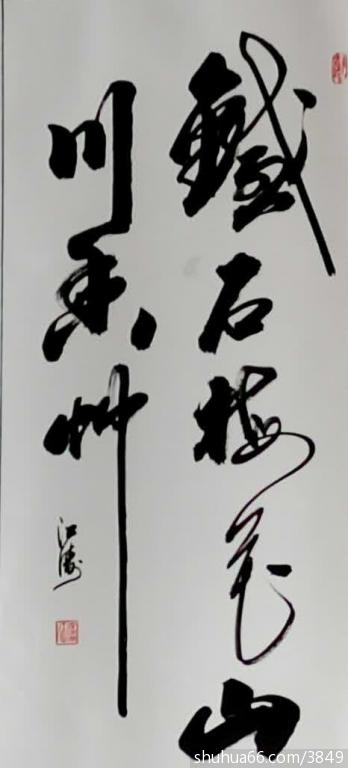 鐵石梅花山
川香艸
江濤
shuhua66.com/3849